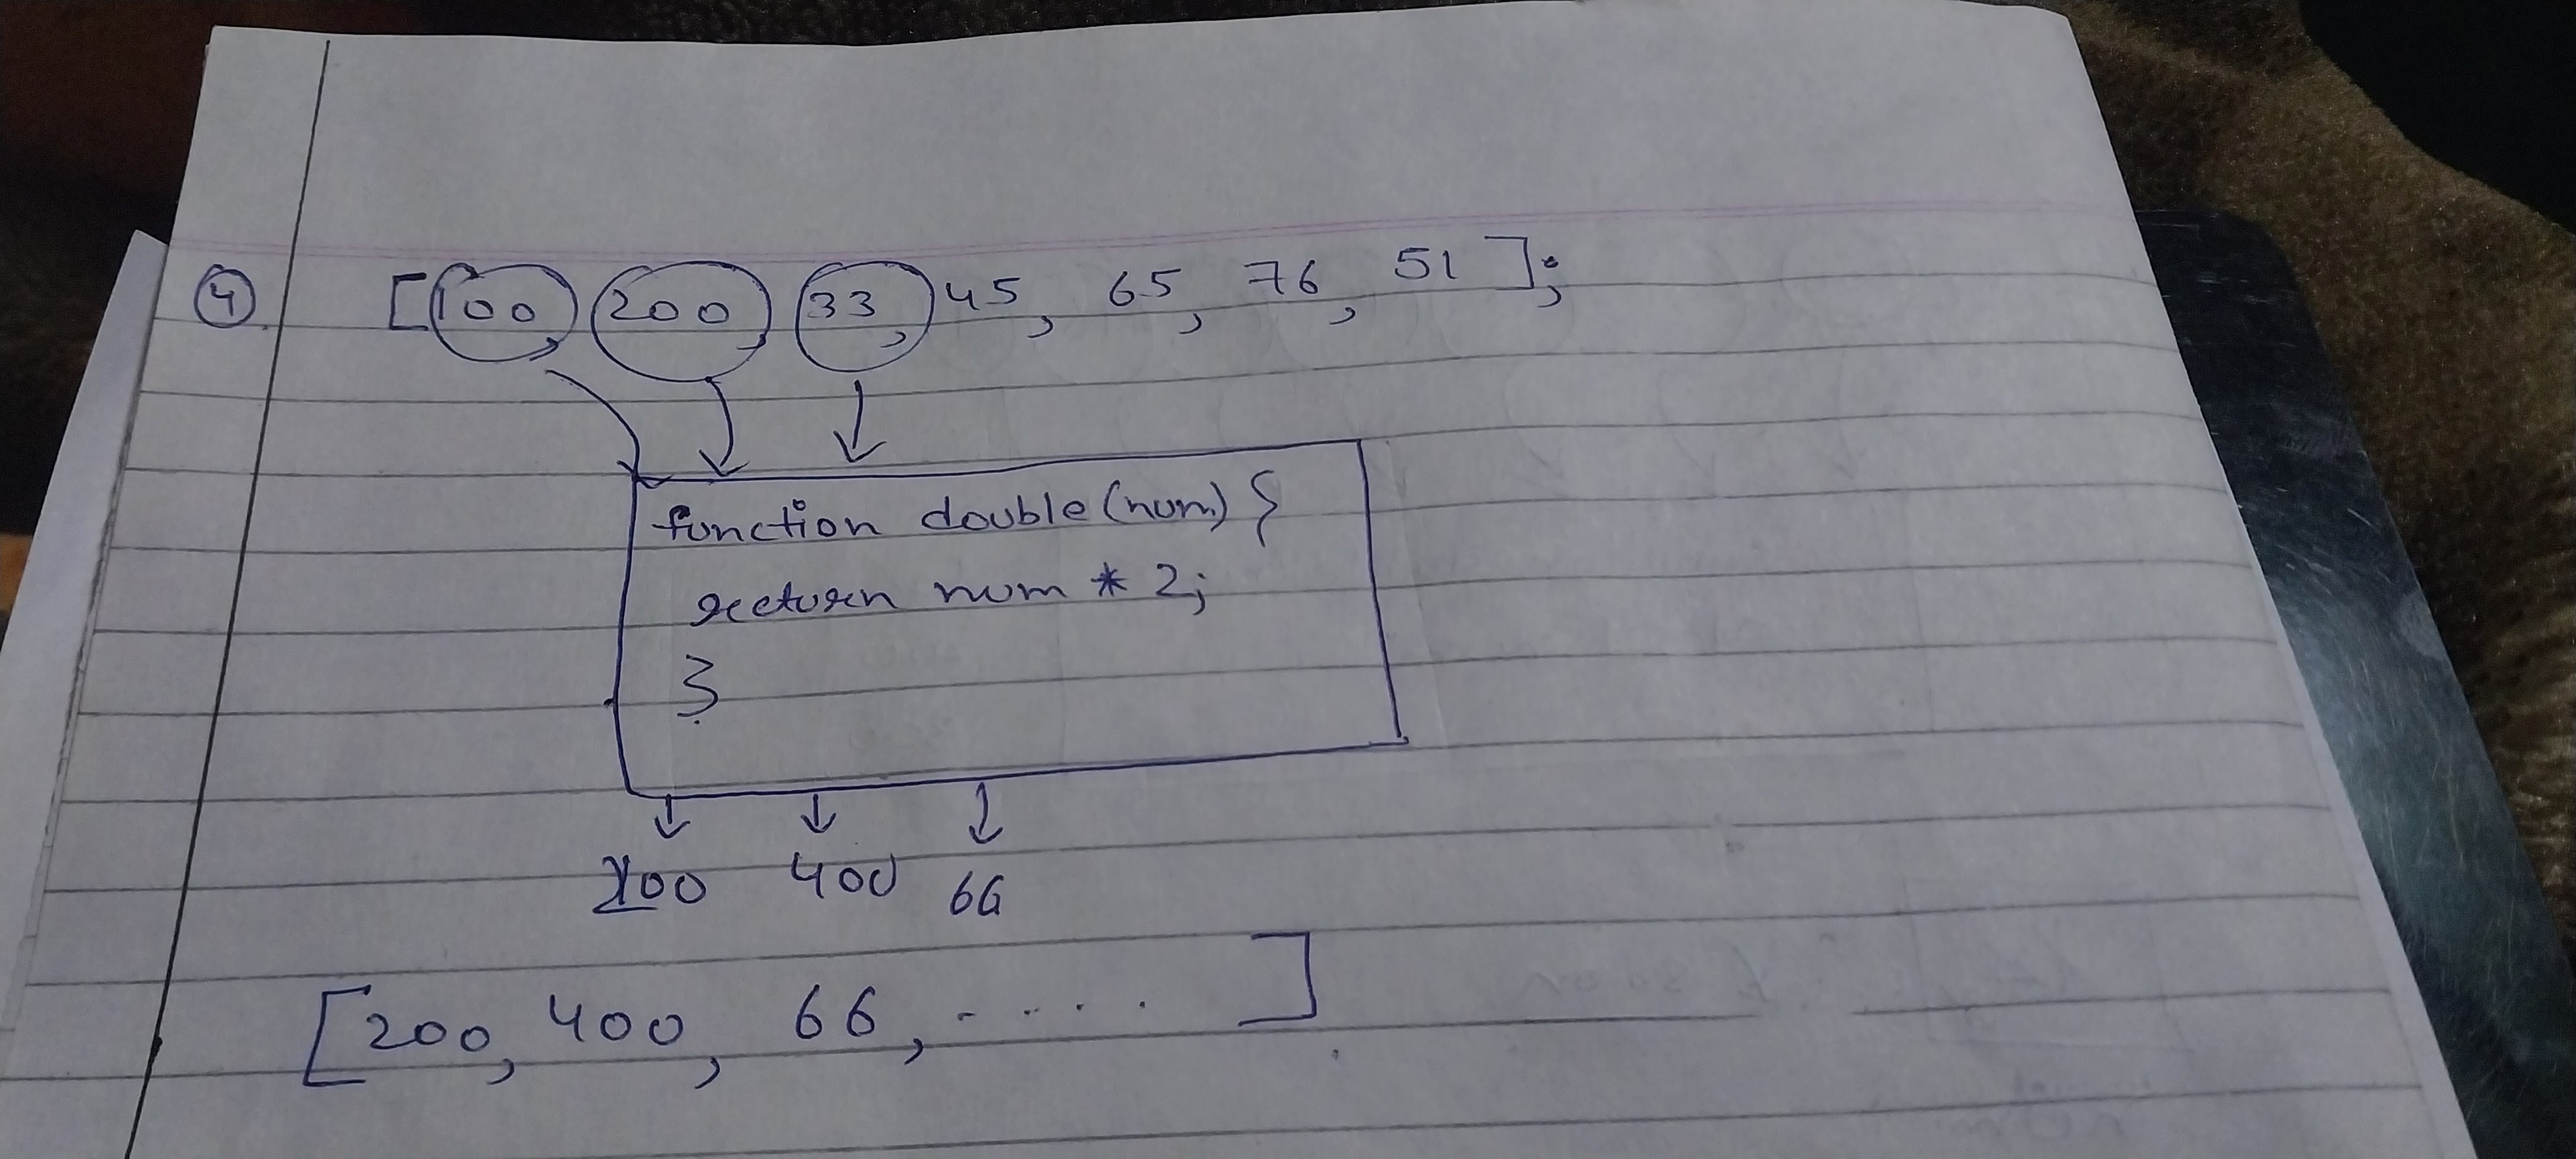 4 [100, 200, 33, 45, 65, 76, 51];
function double(num) {
return num * 2;
}
200 400 66
[200, 400, 66, .....]